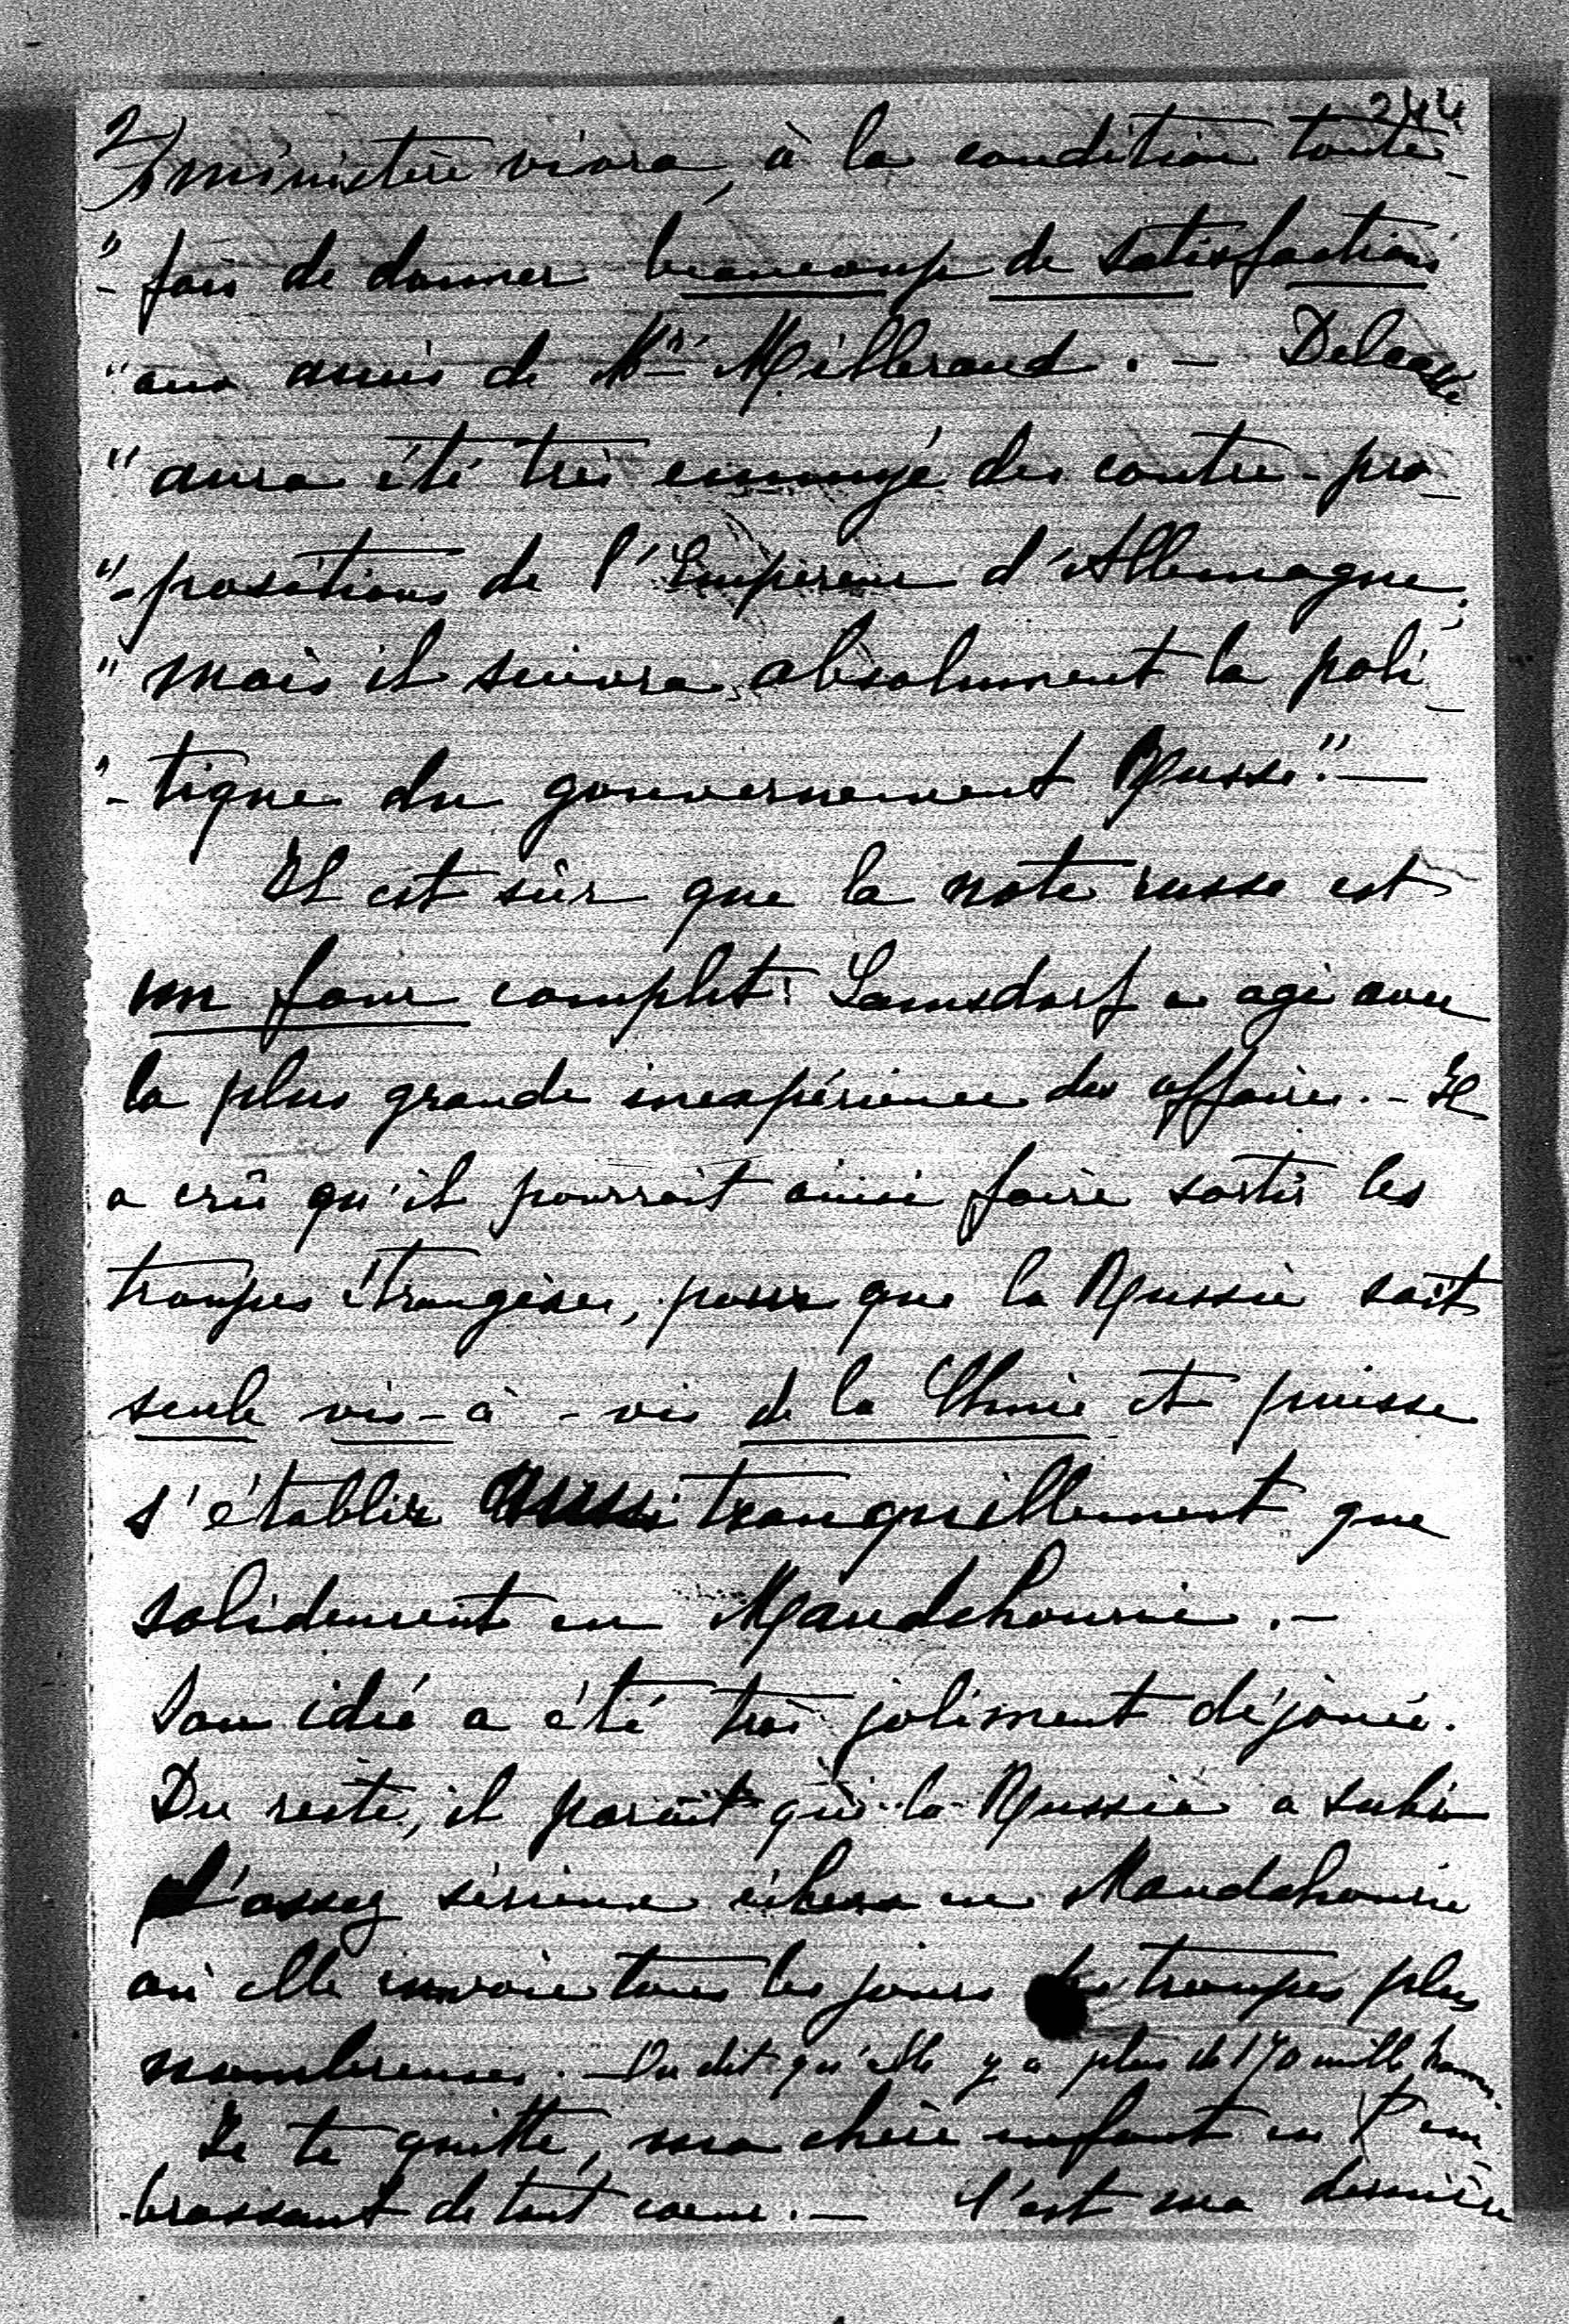 244
2/ ministère vivra, à la condition toute-
"-fois de donner beaucoup de satisfactions
"aux amis de Mr Millerand. – Delcassé
"aura été très ennuyé des contre-pro-
"-positions de l'Empereur d'Allemagne;
"mais il suivra absolument la poli-
"-tique du gouvernement Russe." —
Il est sûr que la note russe est
un four complet: Lamsdorf a agi avec
la plus grande inexpérience des affaires. - Il
a crû qu'il pourrait ainsi faire sortir les
troupes étrangères, pour que la Russie soit
seule vis-à-vis de la Chine et puisse
s'établir aussi tranquillement que
solidement en Mandchourie. -
Son idée a été très joliment déjouée.
Du reste, il paraît que la Russie a subi
d'assez sérieux échecs en Mandchourie
où elle envoie tous les jours des troupes plus
nombreuses. - On dit qu'elle y a plus de 170 mille hommes.
Je te quitte, ma chère enfant en t'em-
-brassant de tout coeur. — C'est ma dernière